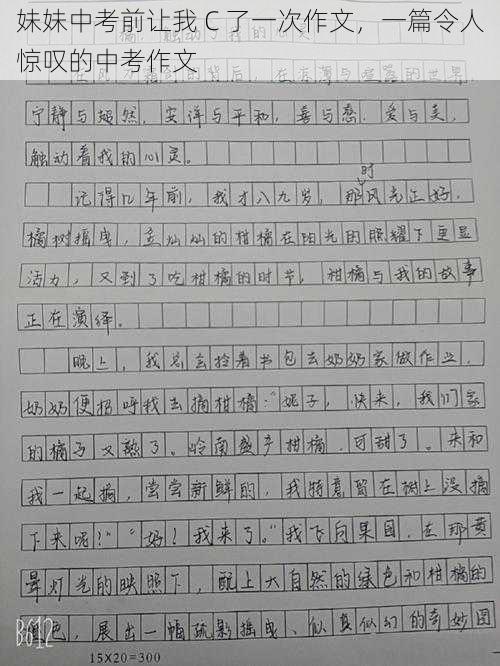 妹妹中考前让我C了一次作文，一篇令人
惊叹的中考作文
宁静与嫣然，安详与平和，喜与愁，爱与美，
触动着我的心灵。
时
记得几年前，我才八九岁，那风光正好，
橘树摇曳，金灿灿的柑橘在阳光的照耀下更显
活力，又到了吃柑橘的时节，柑橘与我的故事
正在演绎。
晚上，我总会拎着书包去奶奶家做作业，
奶奶便招呼我去摘柑橘："妮子，快来，我们家
的橘子又熟了。岭南盛产柑橘，可甜了。来和
我一起摘，尝尝新鲜的，我特意留在树上没摘
下来呢！""奶！我来了。"我飞向果园，在那黄
晕灯光的映照下，配上大自然的绿色和柑橘的
色，展出一幅疏影摇曳、似真似幻的奇妙图
B612
15×20=300